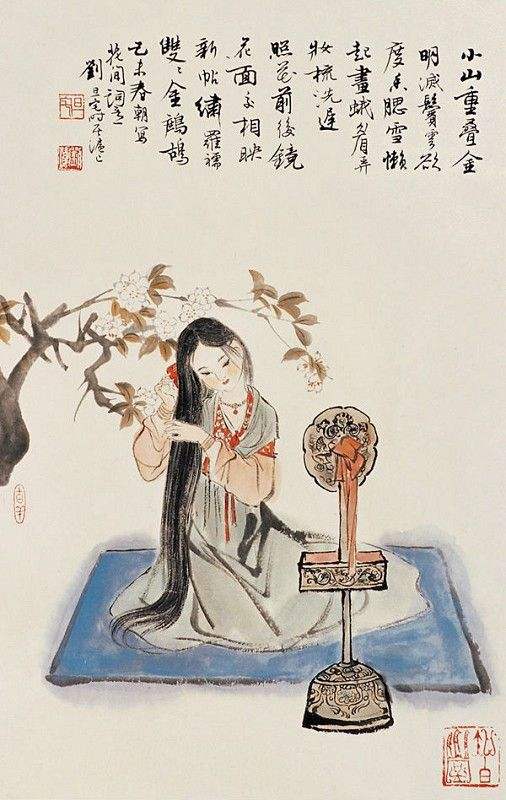 小山重叠金
明滅鬢雲欲
度香腮雪懶
起畫蛾眉弄
妝梳洗遲
照花前後鏡
花面交相映
新帖繡羅襦
雙〻金鷓鴣
己未春朝寫
花間詞意
劉旦宅時在滬上